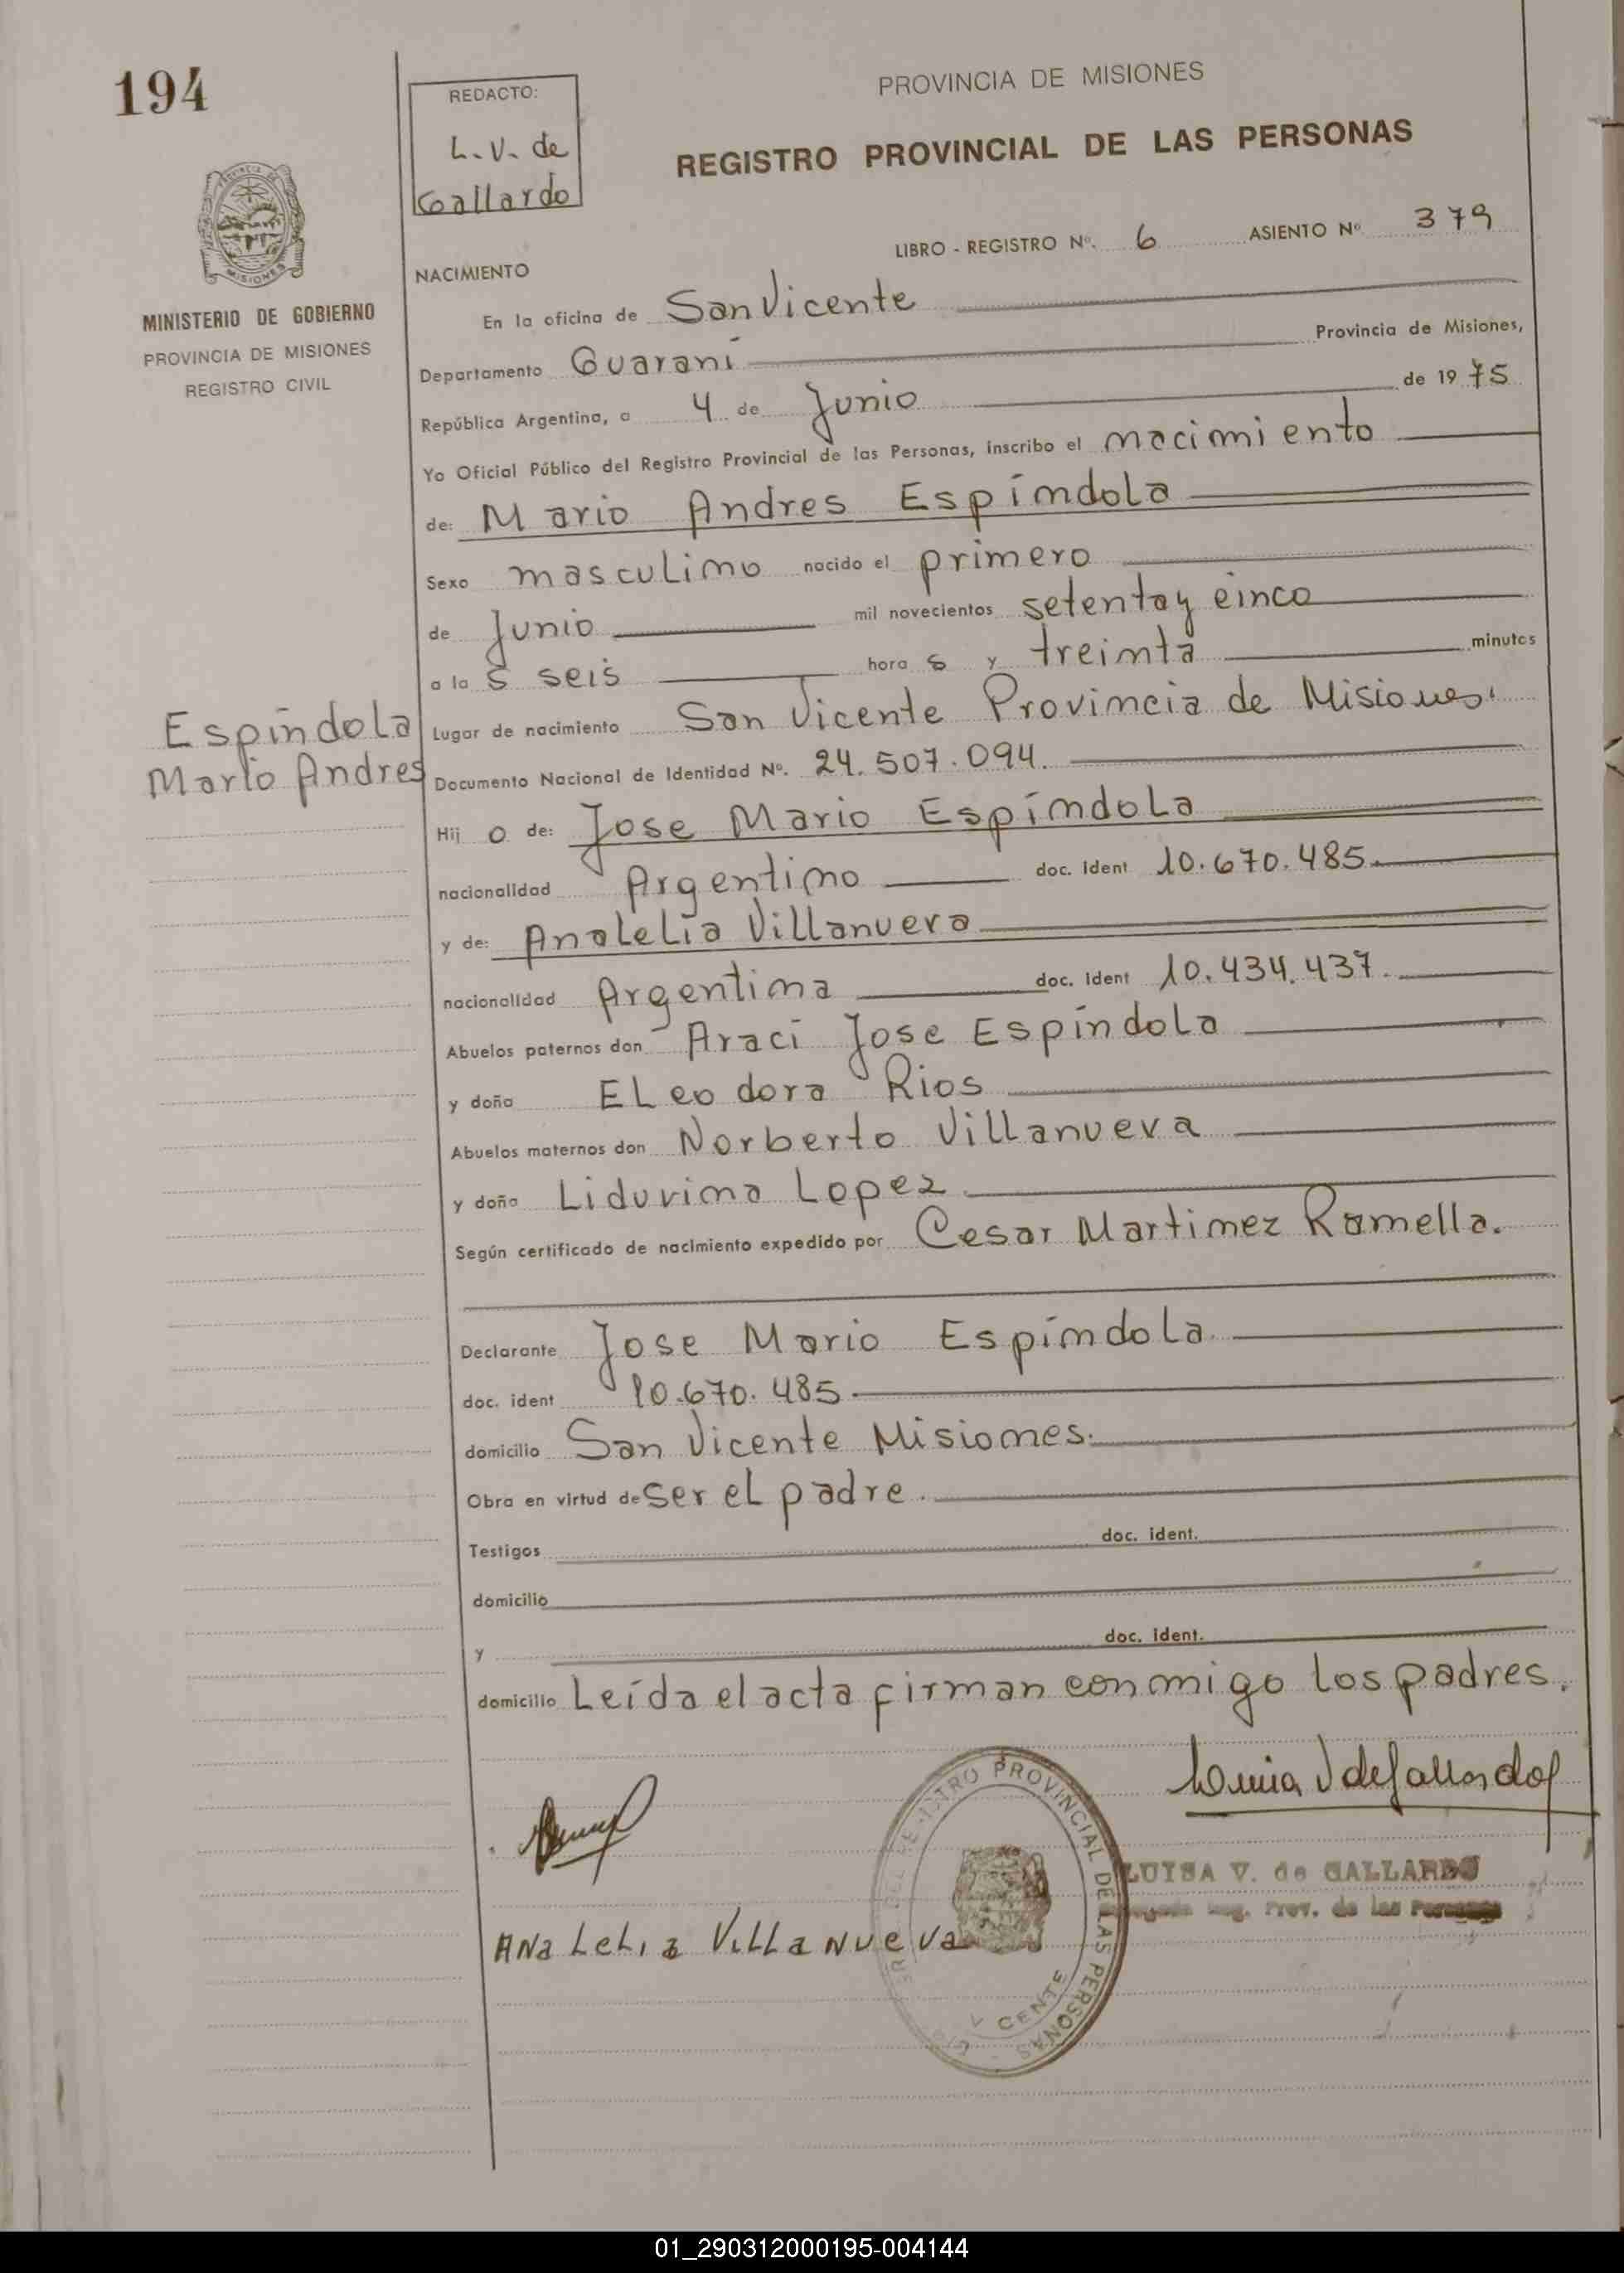 194
REDACTO:
L. V. de
Gallardo
PROVINCIA DE MISIONES
REGISTRO PROVINCIAL DE LAS PERSONAS
PROVINCIA DE
MISIONES
MINISTERIO DE GOBIERNO
PROVINCIA DE MISIONES
REGISTRO CIVIL
LIBRO - REGISTRO Nº. 6 ASIENTO Nº 379
NACIMIENTO
En la oficina de San Vicente
Departamento Guarani Provincia de Misiones,
República Argentina, a 4 de Junio de 1975
Yo Oficial Público del Registro Provincial de las Personas, inscribo el nacimiento
de: Mario Andres Espíndola
Sexo masculino nacido el primero
de Junio mil novecientos setenta y cinco
a las seis horas y treinta minutos
Espíndola
Mario Andres
Lugar de nacimiento San Vicente Provincia de Misiones.
Documento Nacional de Identidad Nº. 24.507.094.
Hijo de: Jose Mario Espíndola
nacionalidad Argentino doc. ident 10.670.485.
y de: Analelia Villanueva
nacionalidad Argentina doc. ident 10.434.437.
Abuelos paternos don Araci Jose Espíndola
y doña Eleodora Rios
Abuelos maternos don Norberto Villanueva
y doña Liduvina Lopez
Según certificado de nacimiento expedido por Cesar Martinez Ramella.
Declarante Jose Mario Espíndola
doc. ident 10.670.485.
domicilio San Vicente Misiones.
Obra en virtud de ser el padre.
Testigos doc. ident.
domicilio
y doc. ident.
domicilio Leída el acta firman conmigo los padres.
Luisa V de Gallardo
LUISA V. de GALLARDO
Reg. Prov. de las Personas
REGISTRO PROVINCIAL DE LAS PERSONAS
VICENTE
Ana Lelia Villanueva
01_290312000195-004144